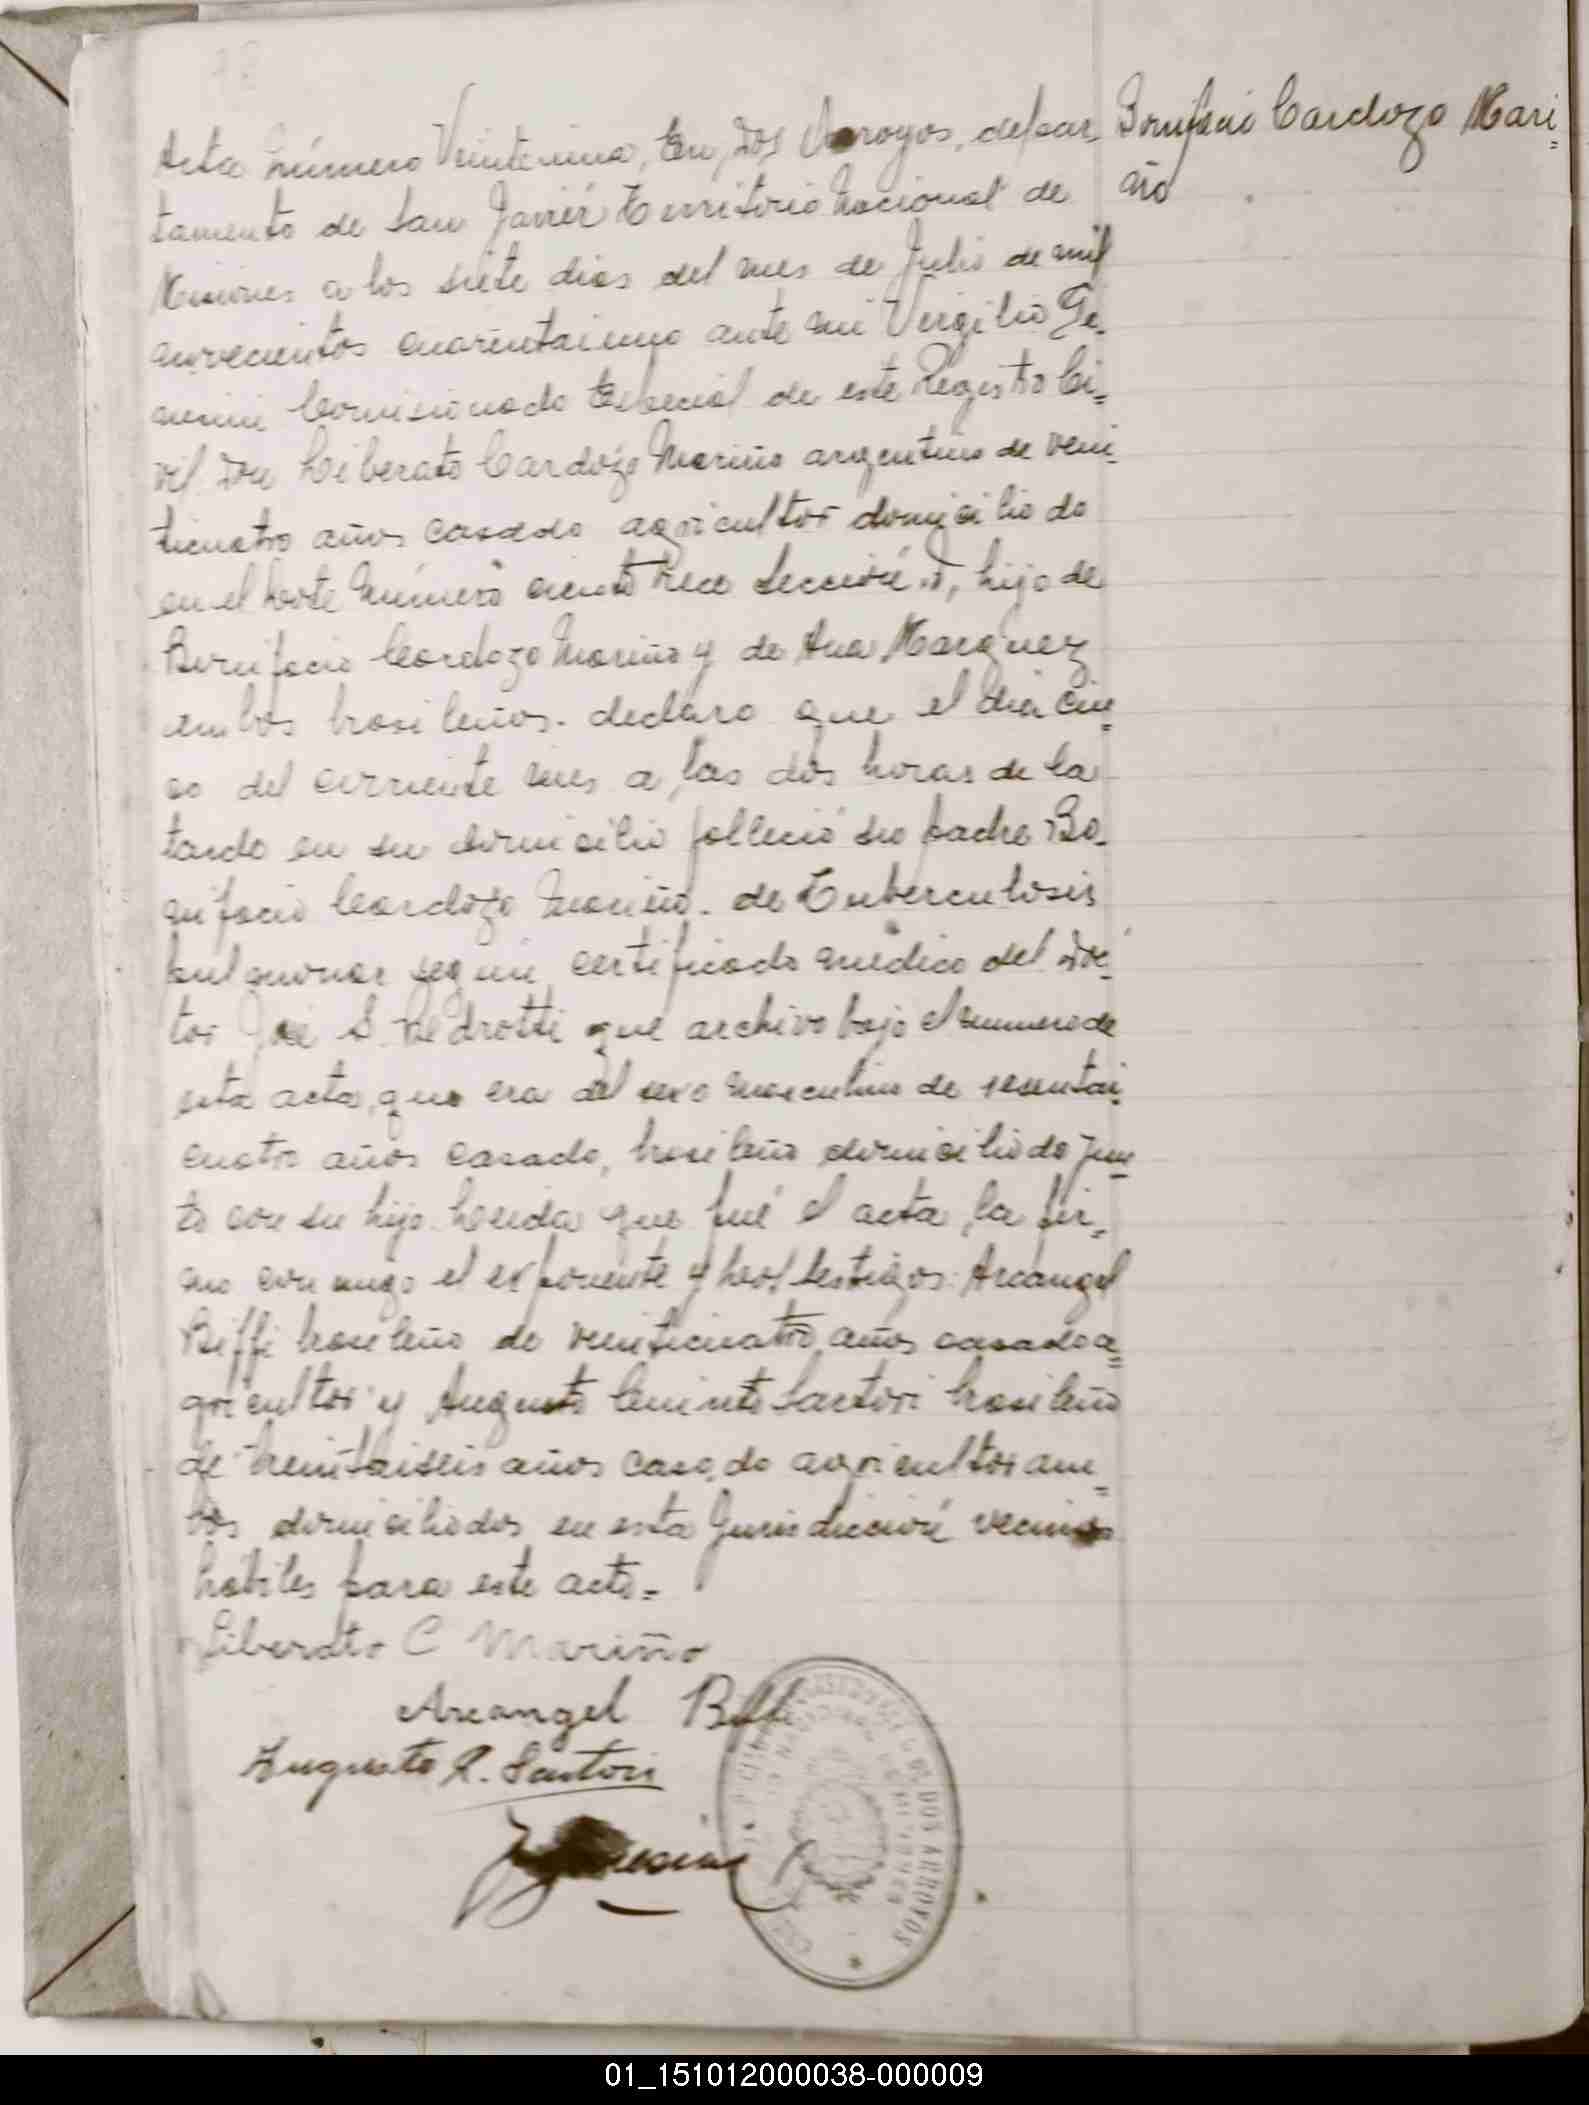 Acta número Veintiuno, En Dos Arroyos, depar-
tamento de San Javiér Territorio Nacional de
Misiones a los siete dias del mes de Julio de mil
novecientos cuarentaiuno ante mi Virgilio
Comisionado Especial de este Registro Ci-
vil Don Liberato Cardozo Mariño argentino de vein-
ticuatro años casado agricultor domiciliado
en el Lote número ciento trece Sección , hijo de
Bonifacio Cardozo Mariño y de Ana Marquez
ambos brasileños. declaro que el dia cin-
co del corriente mes a las dos horas de la
tarde en su domicilio falleció su padre Bo-
nifacio Cardozo Mariño. de Tuberculosis
pulmonar segun certificado médico del Doc-
tor José S. Pedrotti que archivo bajo el numero de
esta acta, que era del sexo masculino de sesentai
cuatro años casado, brasileño domiciliado jun-
to con su hijo. Leida que fué el acta, la fir-
mo conmigo el exponente y los testigos: Arcangel
Biffi brasileño de veinticuatro años casado a-
gricultor y Augusto Sartori brasileño
de treintaiseis años casado agricultor am-
bos domiciliados en esta Jurisdicción vecinos
hábiles para este acto.=
Bonifacio Cardozo Mari-
ño
Liberato C Mariño
Arcangel Biffi
Augusto R. Sartori
DE DOS ARROYOS
01_151012000038-000009